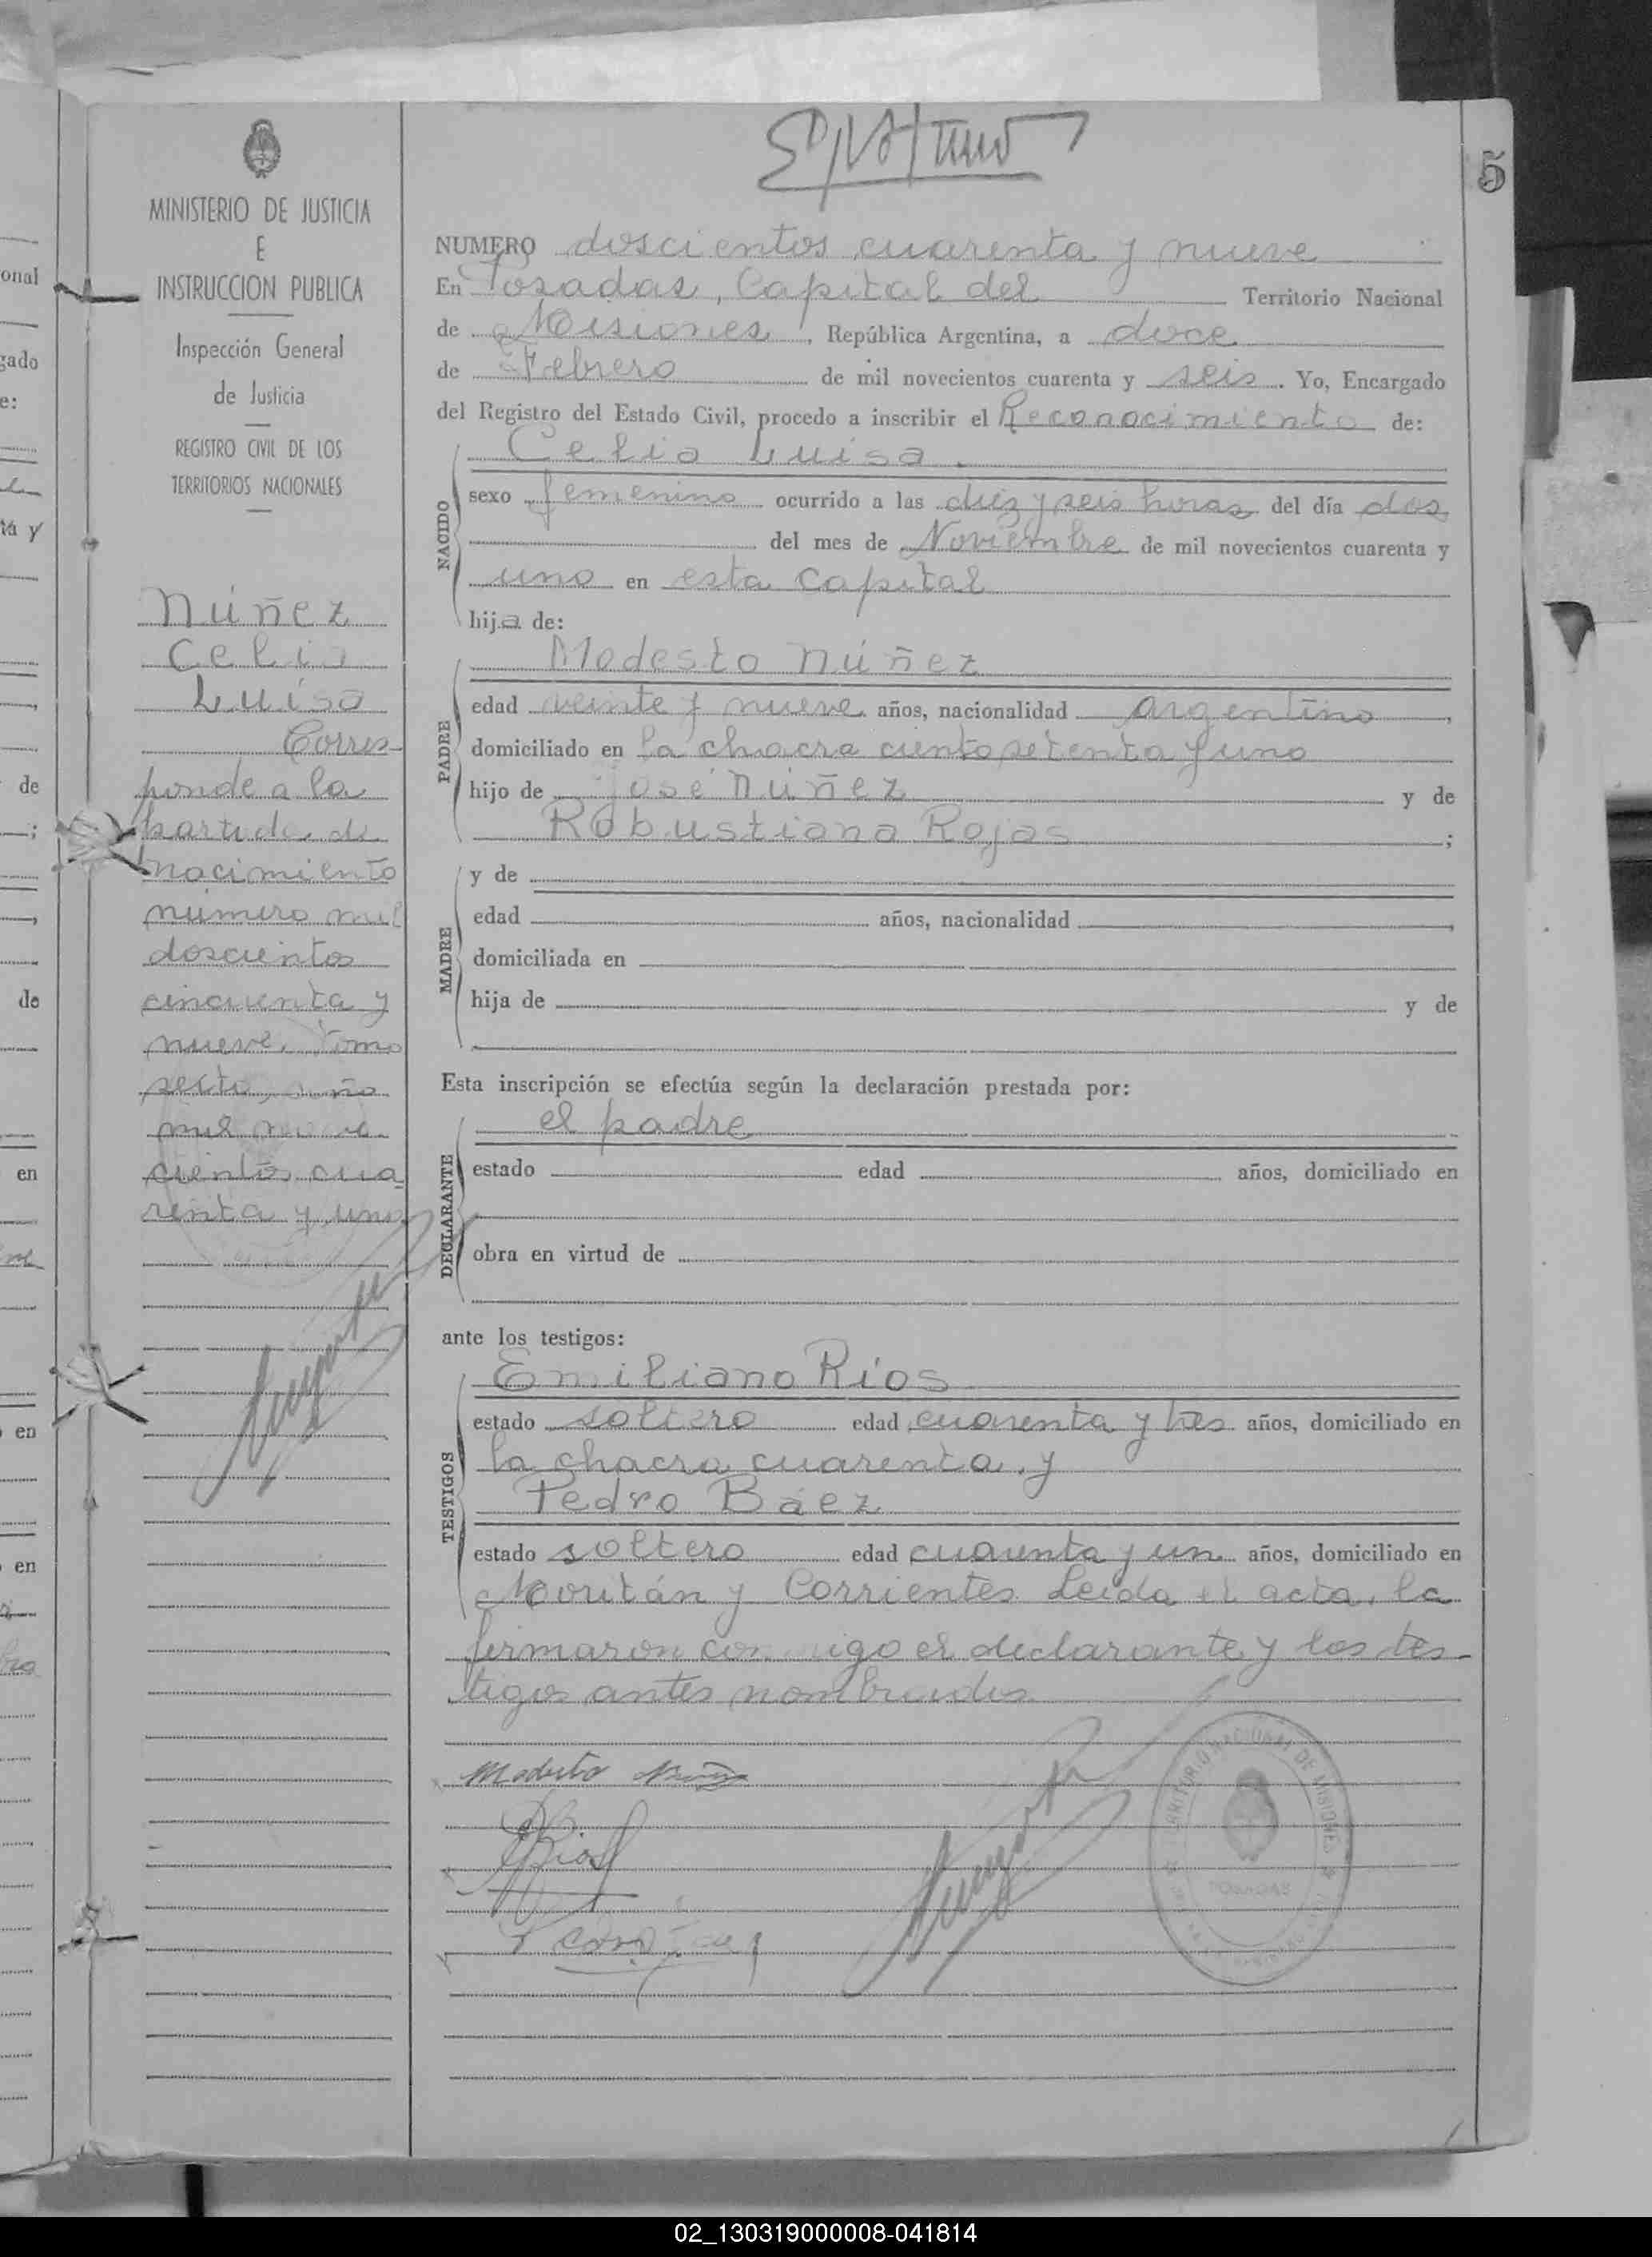 5
MINISTERIO DE JUSTICIA
E
INSTRUCCION PUBLICA
Inspección General
de Justicia
REGISTRO CIVIL DE LOS
TERRITORIOS NACIONALES
Núñez
Celia
Luisa
Corres-
ponde a la
partida de
nacimiento
número mil
doscientos
cincuenta y
nueve, tomo
sexto, año
mil nove
cientos cua
renta y uno
NUMERO doscientos cuarenta y nueve
En Posadas, Capital del Territorio Nacional
de Misiones, República Argentina, a doce
de Febrero de mil novecientos cuarenta y seis. Yo, Encargado
del Registro del Estado Civil, procedo a inscribir el Reconocimiento de:
Celia Luisa
NACIDO
sexo femenino ocurrido a las diez y seis horas del día dos
del mes de Noviembre de mil novecientos cuarenta y
uno en esta capital
hija de:
Modesto Núñez
PADRE
edad veinte y nueve años, nacionalidad argentino,
domiciliado en la chacra ciento setenta y uno
hijo de José Núñez y de
Robustiana Rojas;
MADRE
y de
edad años, nacionalidad
domiciliada en
hija de y de
Esta inscripción se efectúa según la declaración prestada por:
el padre
DECLARANTE
estado edad años, domiciliado en
obra en virtud de
ante los testigos:
Emiliano Ríos
TESTIGOS
estado soltero edad cuarenta y tres años, domiciliado en
la chacra cuarenta y
Pedro Báez
estado soltero edad cuarenta y un años, domiciliado en
y Corrientes Leída el acta, la
firmaron conmigo el declarante y los tes-
tigos antes nombrados
Modesto
TERRITORIO NACIONAL DE MISIONES
POSADAS
02_130319000008-041814